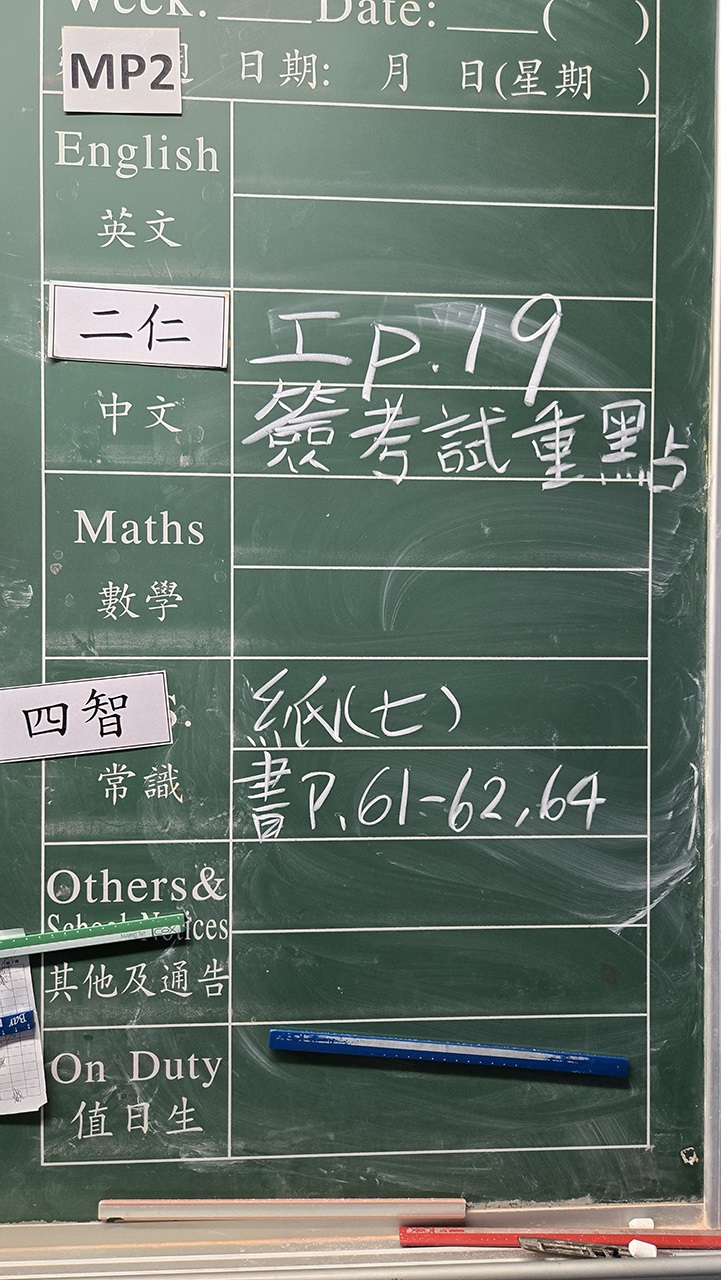 Week: ____ Date: ____( )
MP2
週 日期: 月 日(星期 )
English
英文
二仁
工 p.19
中文
簽考試重點
Maths
數學
四智
S.
紙(七)
常識
書P.61-62,64
Others&
School Notices
其他及通告
On Duty
值日生